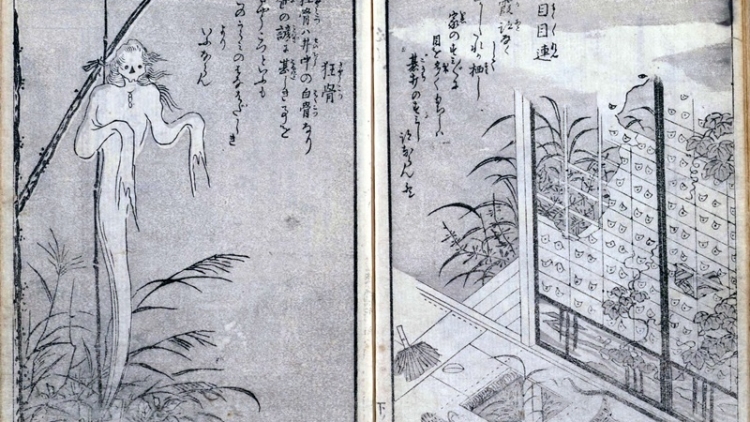 目目連
霞跡なく
して
したれか栖し
家のすみ〴〵に
目を多くもちしは
碁打のすみし
跡ならんか
狂骨
狂骨ハ井中の白骨なり
の諺に甚しき事を
うこつといふも
のうらみのはなはだしき
より
いふならん
下